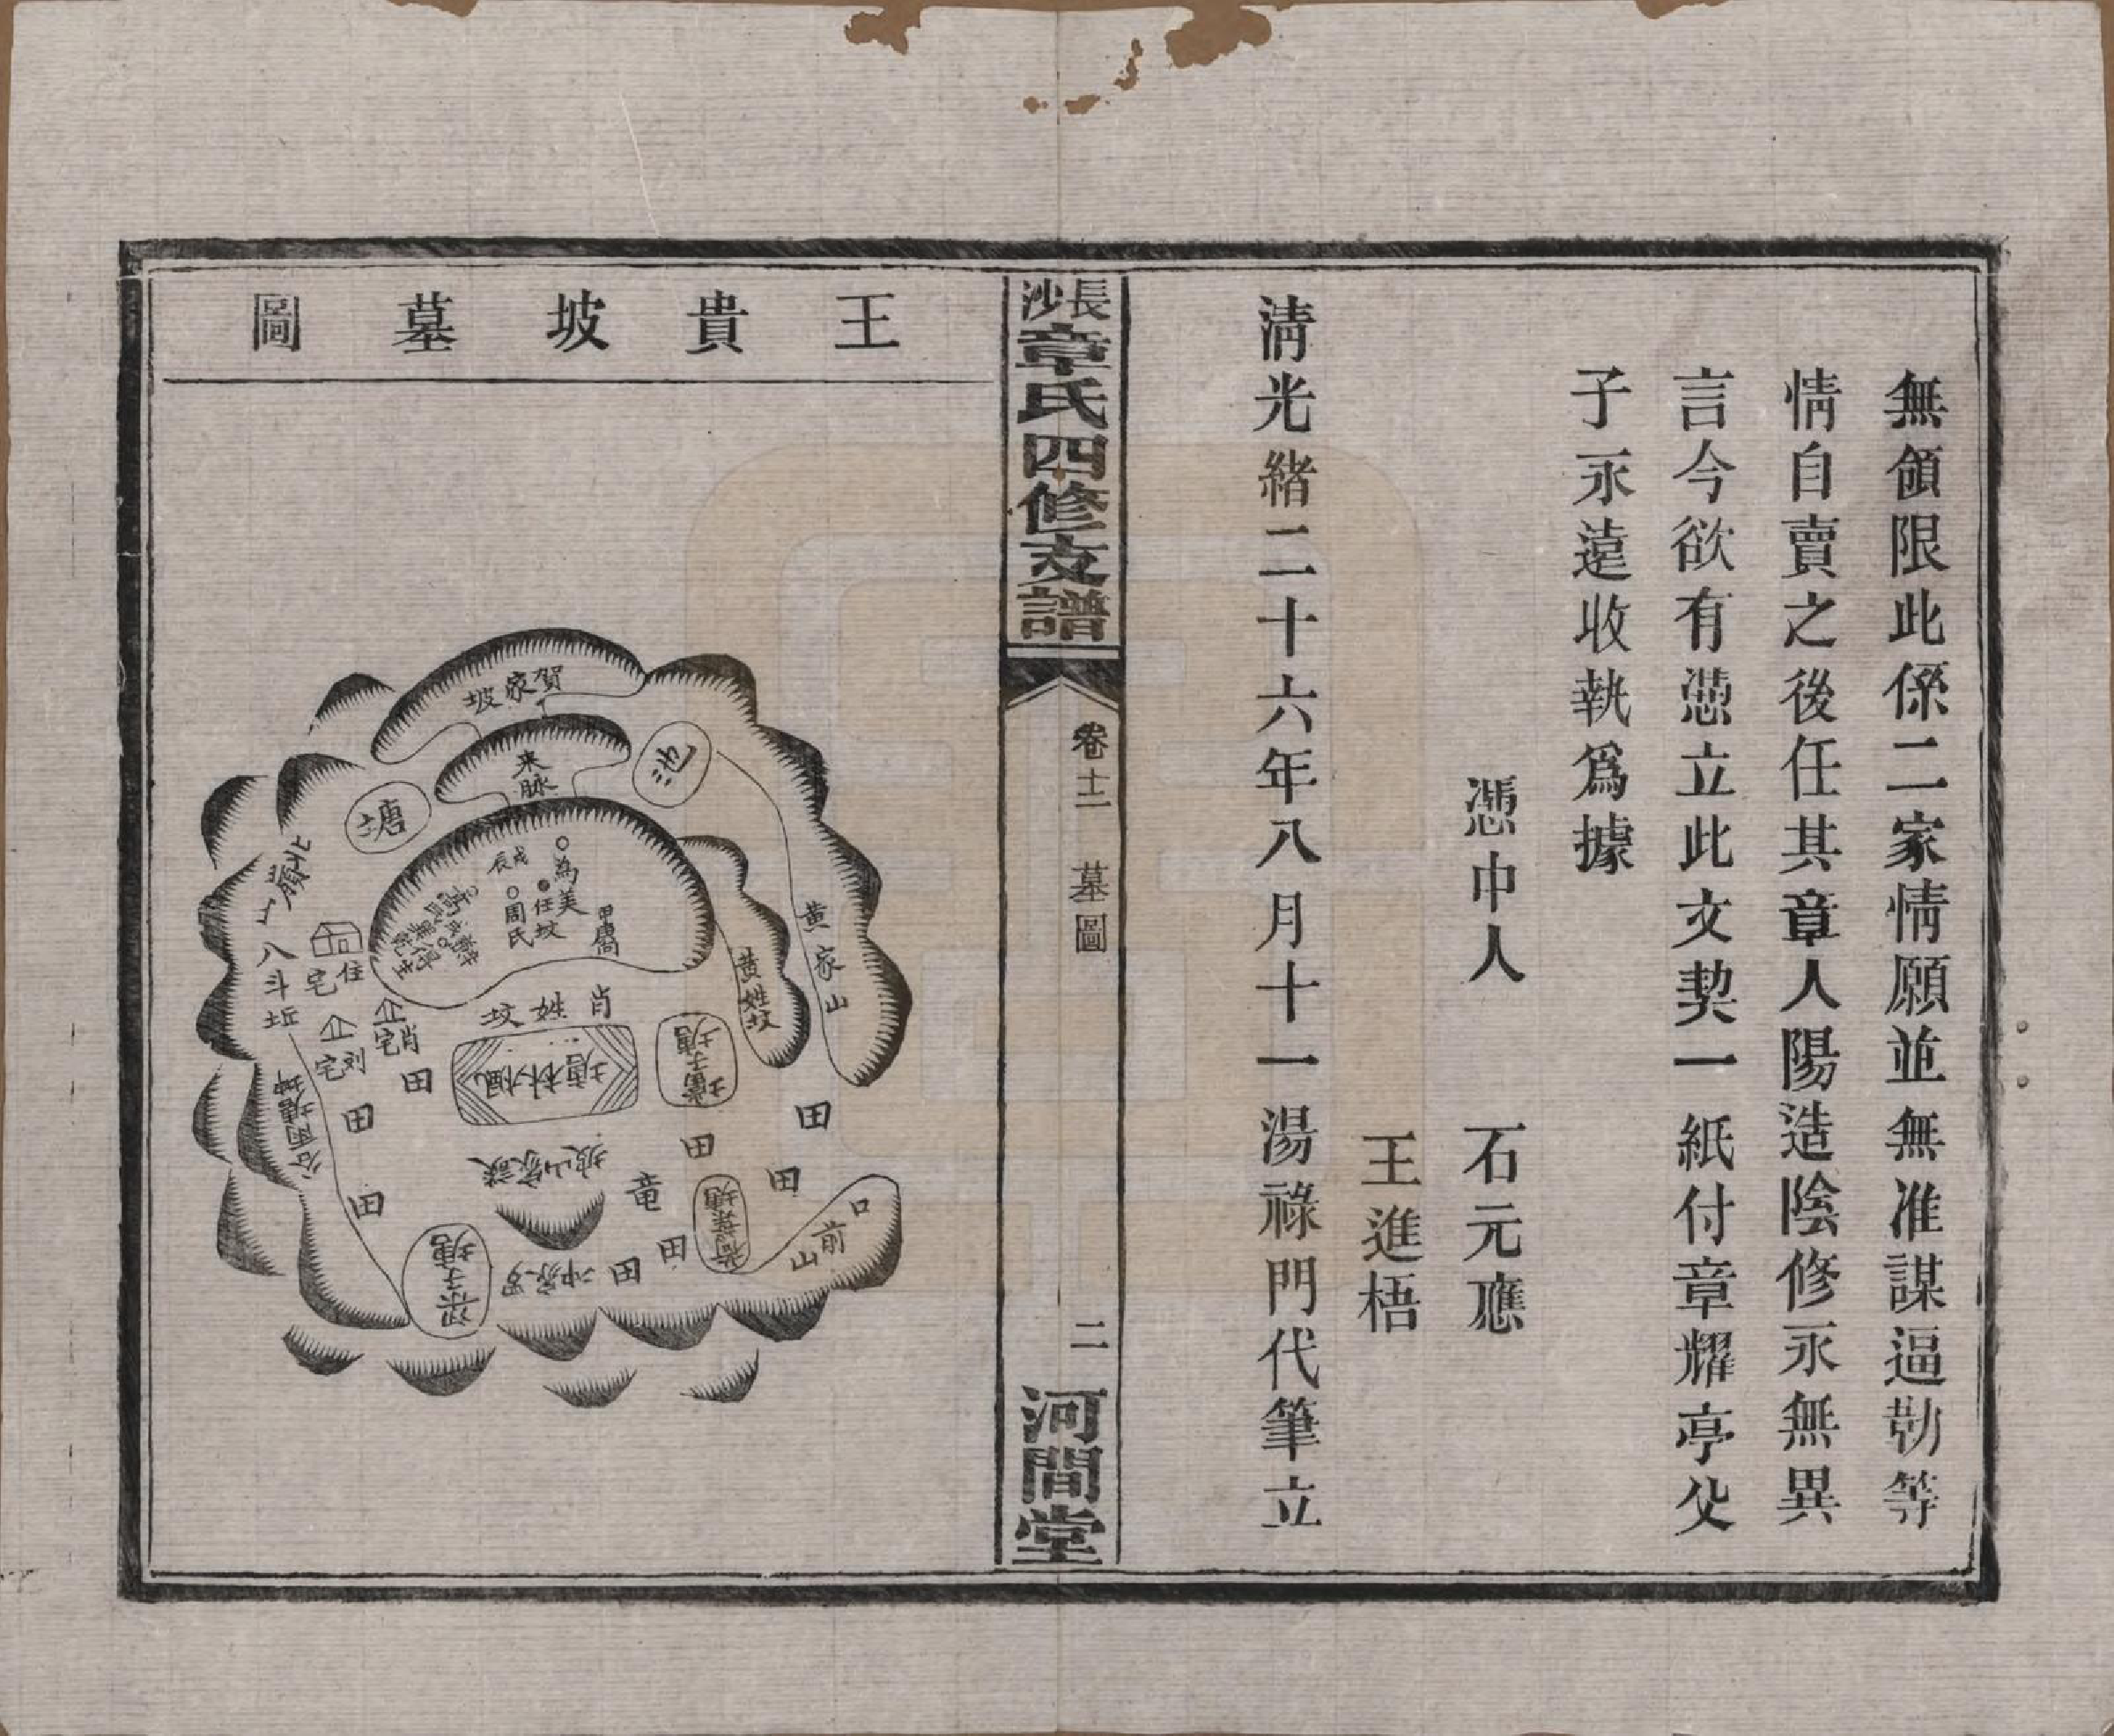 無領限此係二家情願並無准謀逼勒等
情自賣之後任其章人陽造陰修永無異
言今欲有憑立此文契一紙付章耀亭父
子永遠收執爲據
憑中人 石元應
王進梧
清光緒二十六年八月十一湯祿門代筆立
長沙章氏四修支譜
卷十二 墓圖
二
河間堂
王貴坡墓圖
賀家坡
来脉
塘
為美
任坟
周氏
戌辰
甲庚
黃家山
黃姓坟
肖姓坟
住宅
肖宅
刘宅
八斗坵
田
田
田
田
田
田
田
田
口前山